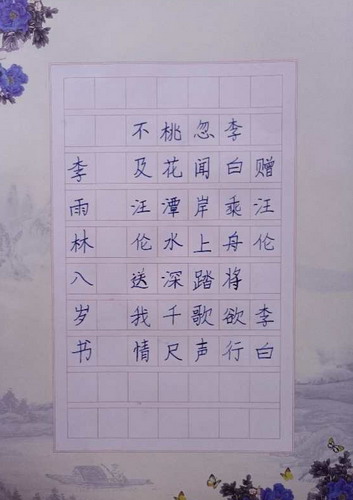 赠汪伦 李白
李白乘舟将欲行
忽闻岸上踏歌声
桃花潭水深千尺
不及汪伦送我情
李雨林八岁书